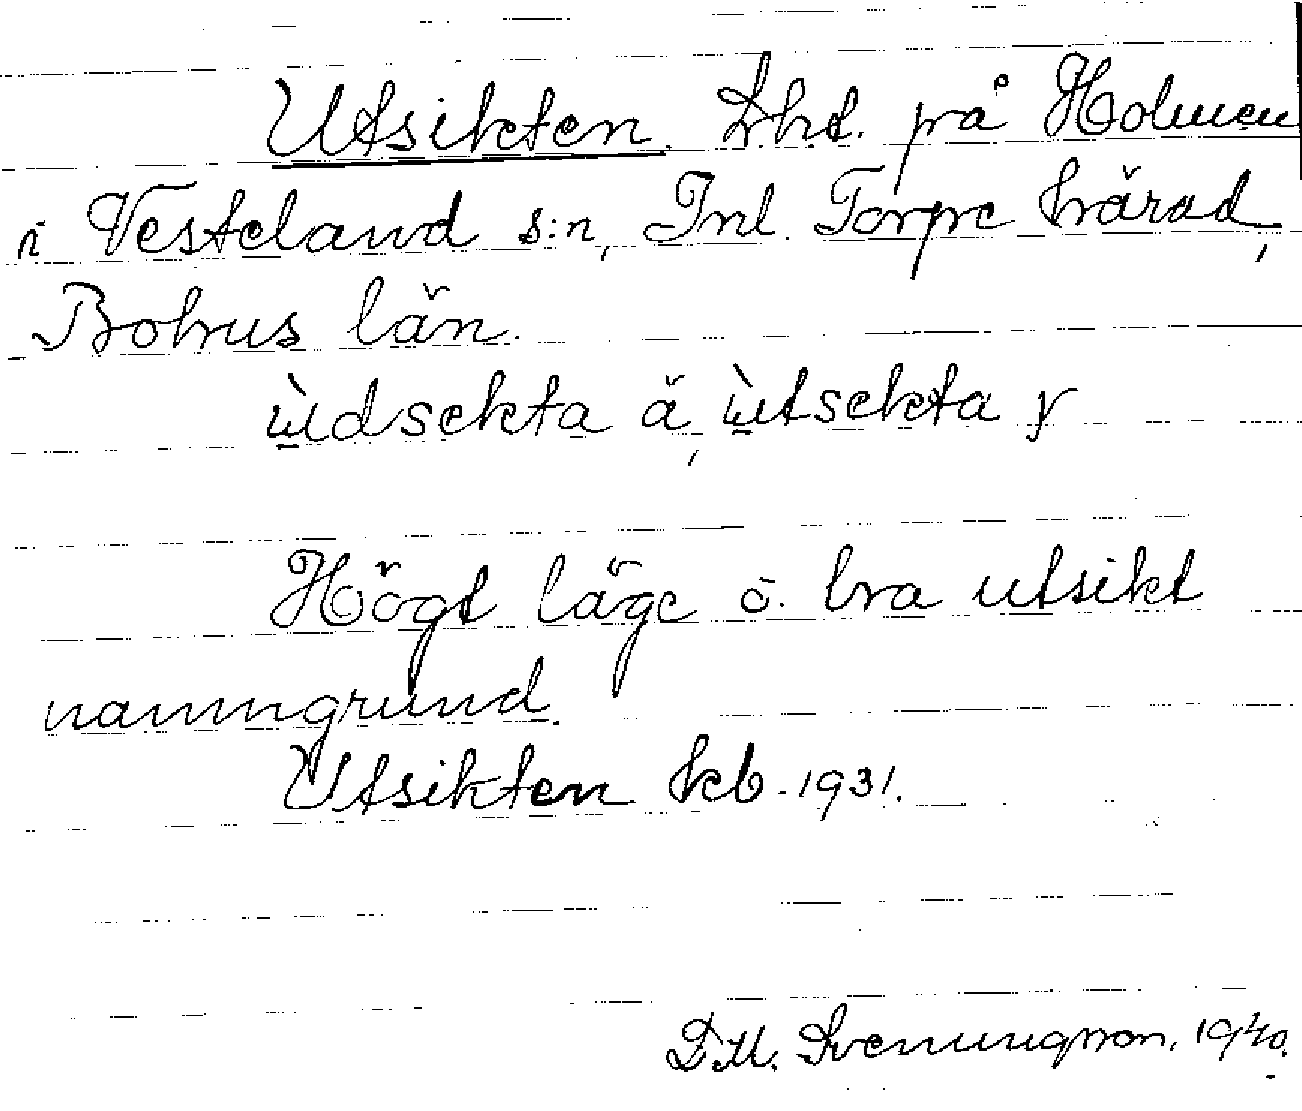 Utsikten. Lht. på Holmen
i Vesteland s:n, Inl. Torpe härad,
Bohus län.
ùdsekta ä, ùtsekta y
Högt läge o. bra utsikt
namngrund.
Utsikten kb. 1931.
D.M. Svenungsson, 1940.